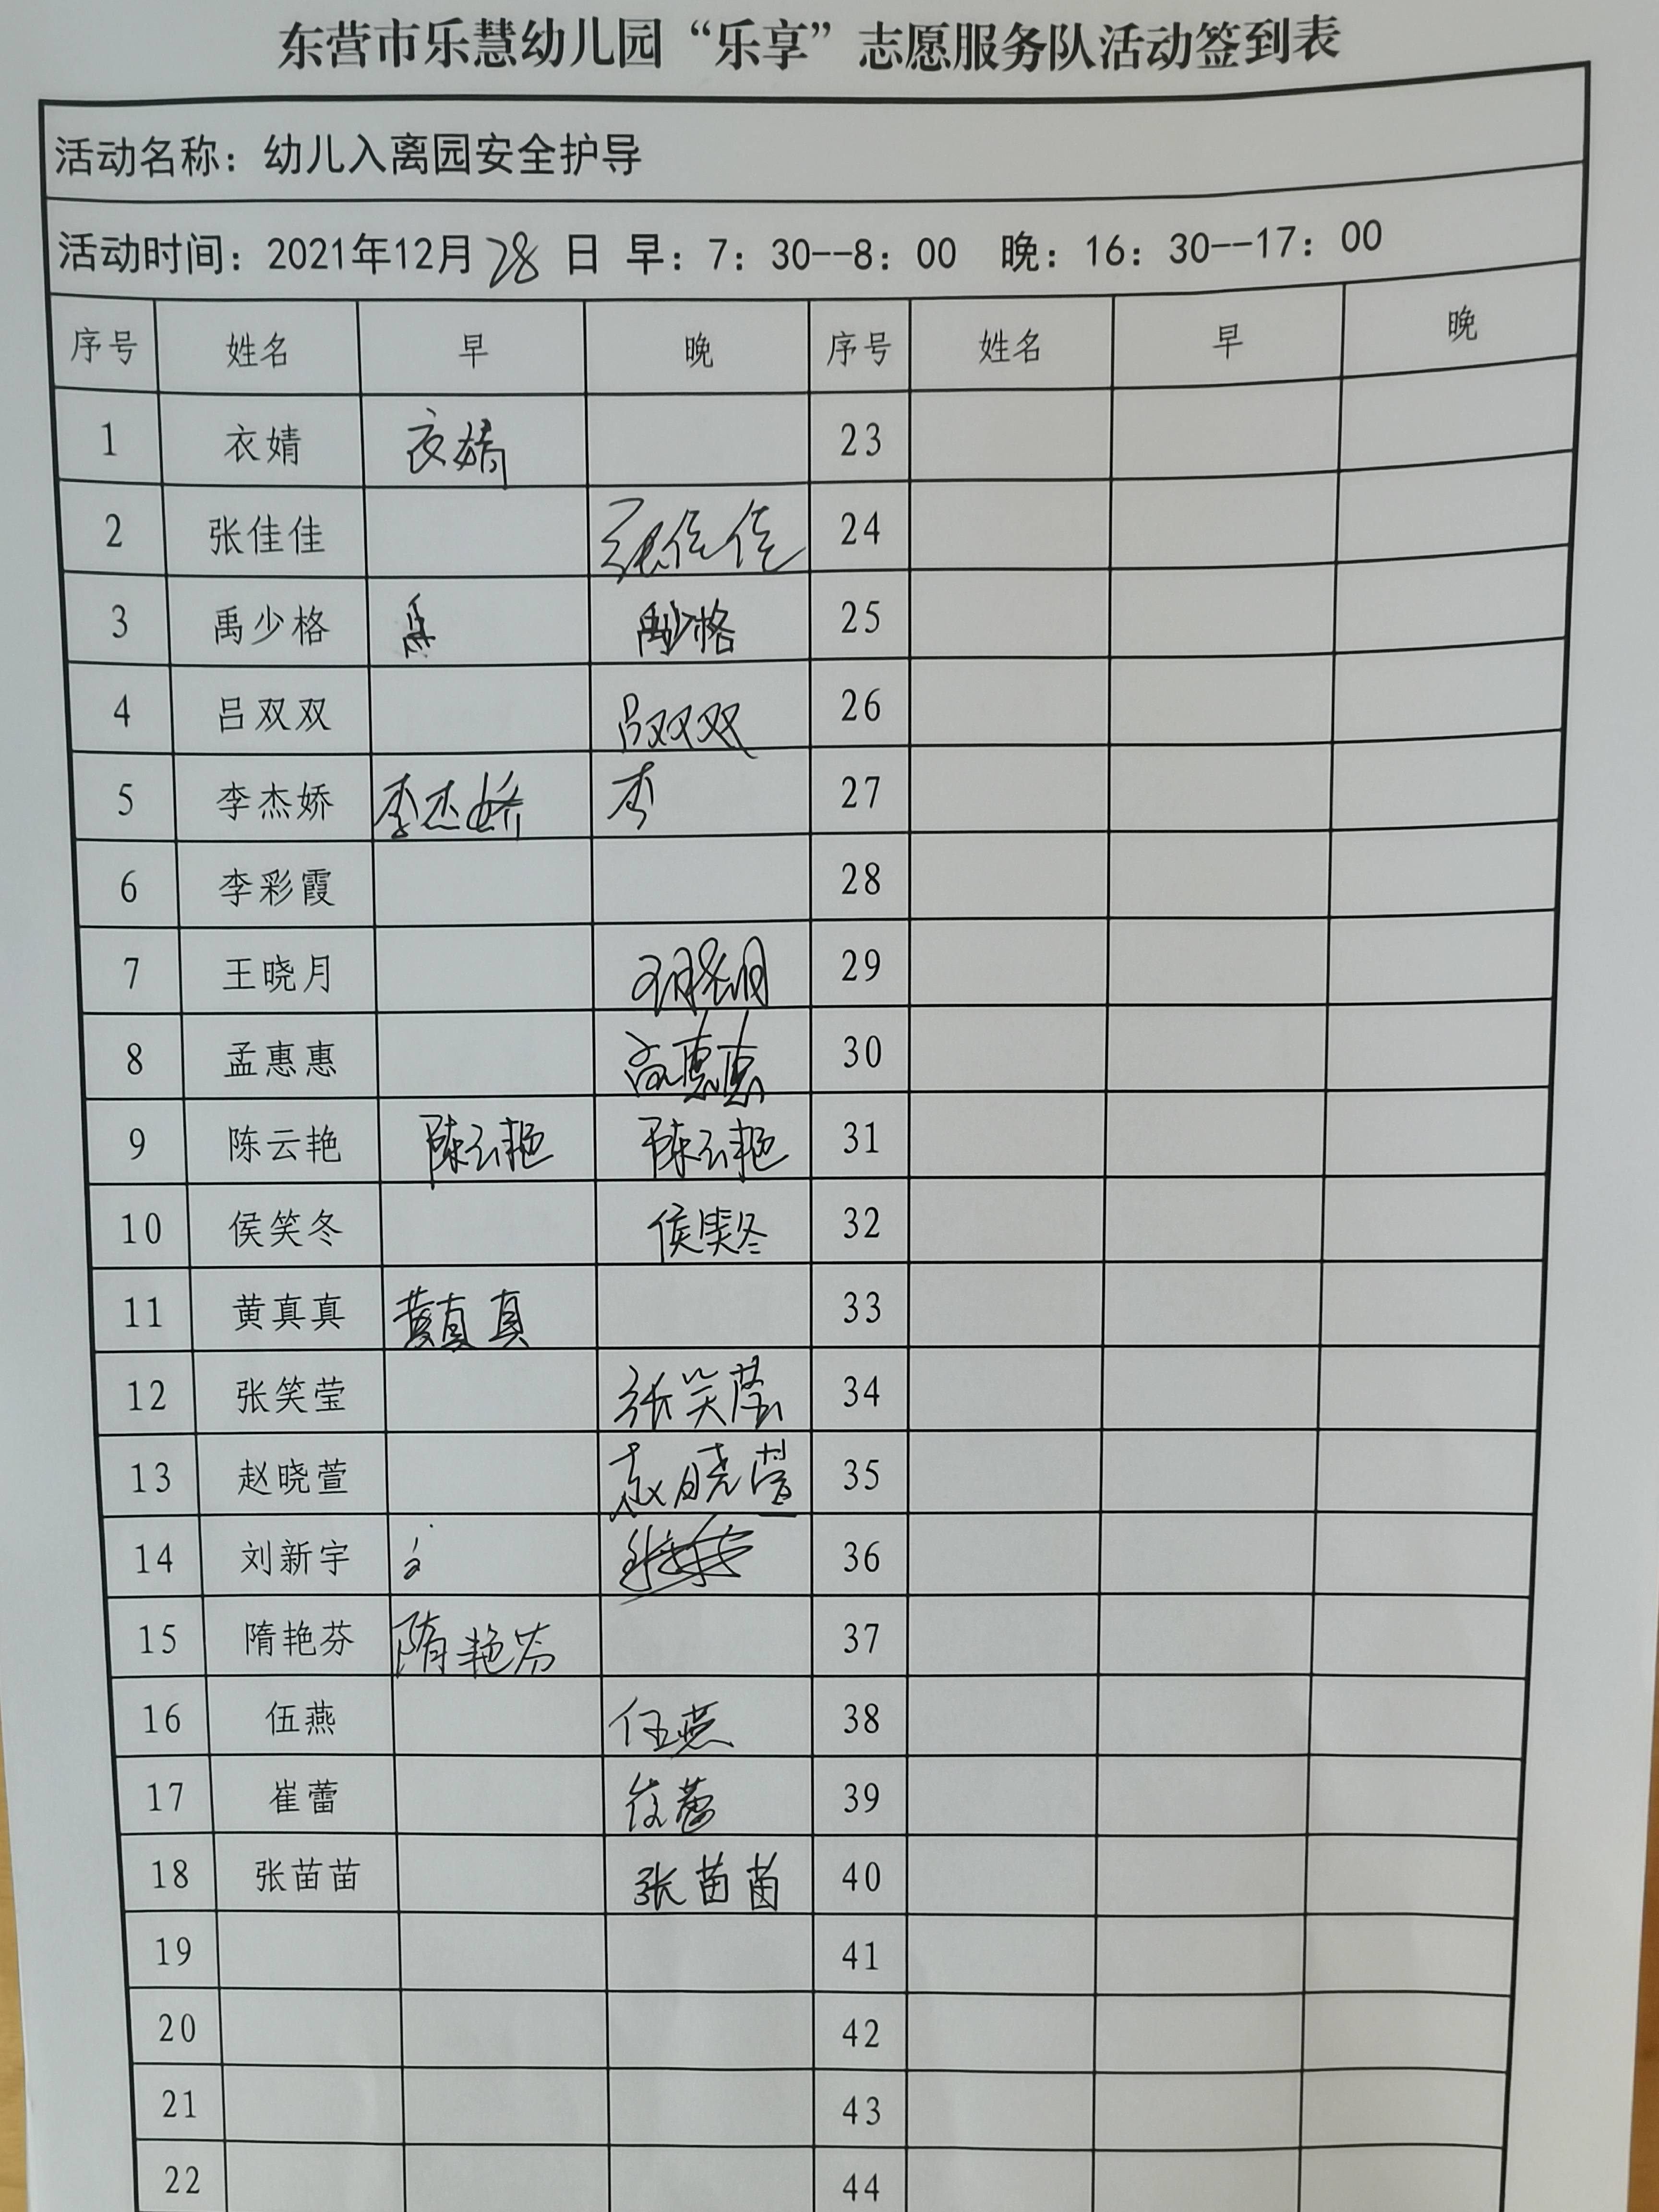 东营市乐慧幼儿园“乐享”志愿服务队活动签到表
活动名称：幼儿入离园安全护导
活动时间：2021年12月28日 早：7：30--8：00 晚：16：30--17：00
序号 姓名 早 晚 序号 姓名 早 晚
1 衣婧 衣婧 23
2 张佳佳 张佳佳 24
3 禹少格 禹少格 25
4 吕双双 吕双双 26
5 李杰娇 李杰娇 李 27
6 李彩霞 28
7 王晓月 王晓月 29
8 孟惠惠 孟惠惠 30
9 陈云艳 陈云艳 陈云艳 31
10 侯笑冬 侯笑冬 32
11 黄真真 黄真真 33
12 张笑莹 张笑莹 34
13 赵晓萱 赵晓萱 35
14 刘新宇 36
15 隋艳芬 隋艳芬 37
16 伍燕 伍燕 38
17 崔蕾 崔蕾 39
18 张苗苗 张苗苗 40
19 41
20 42
21 43
22 44